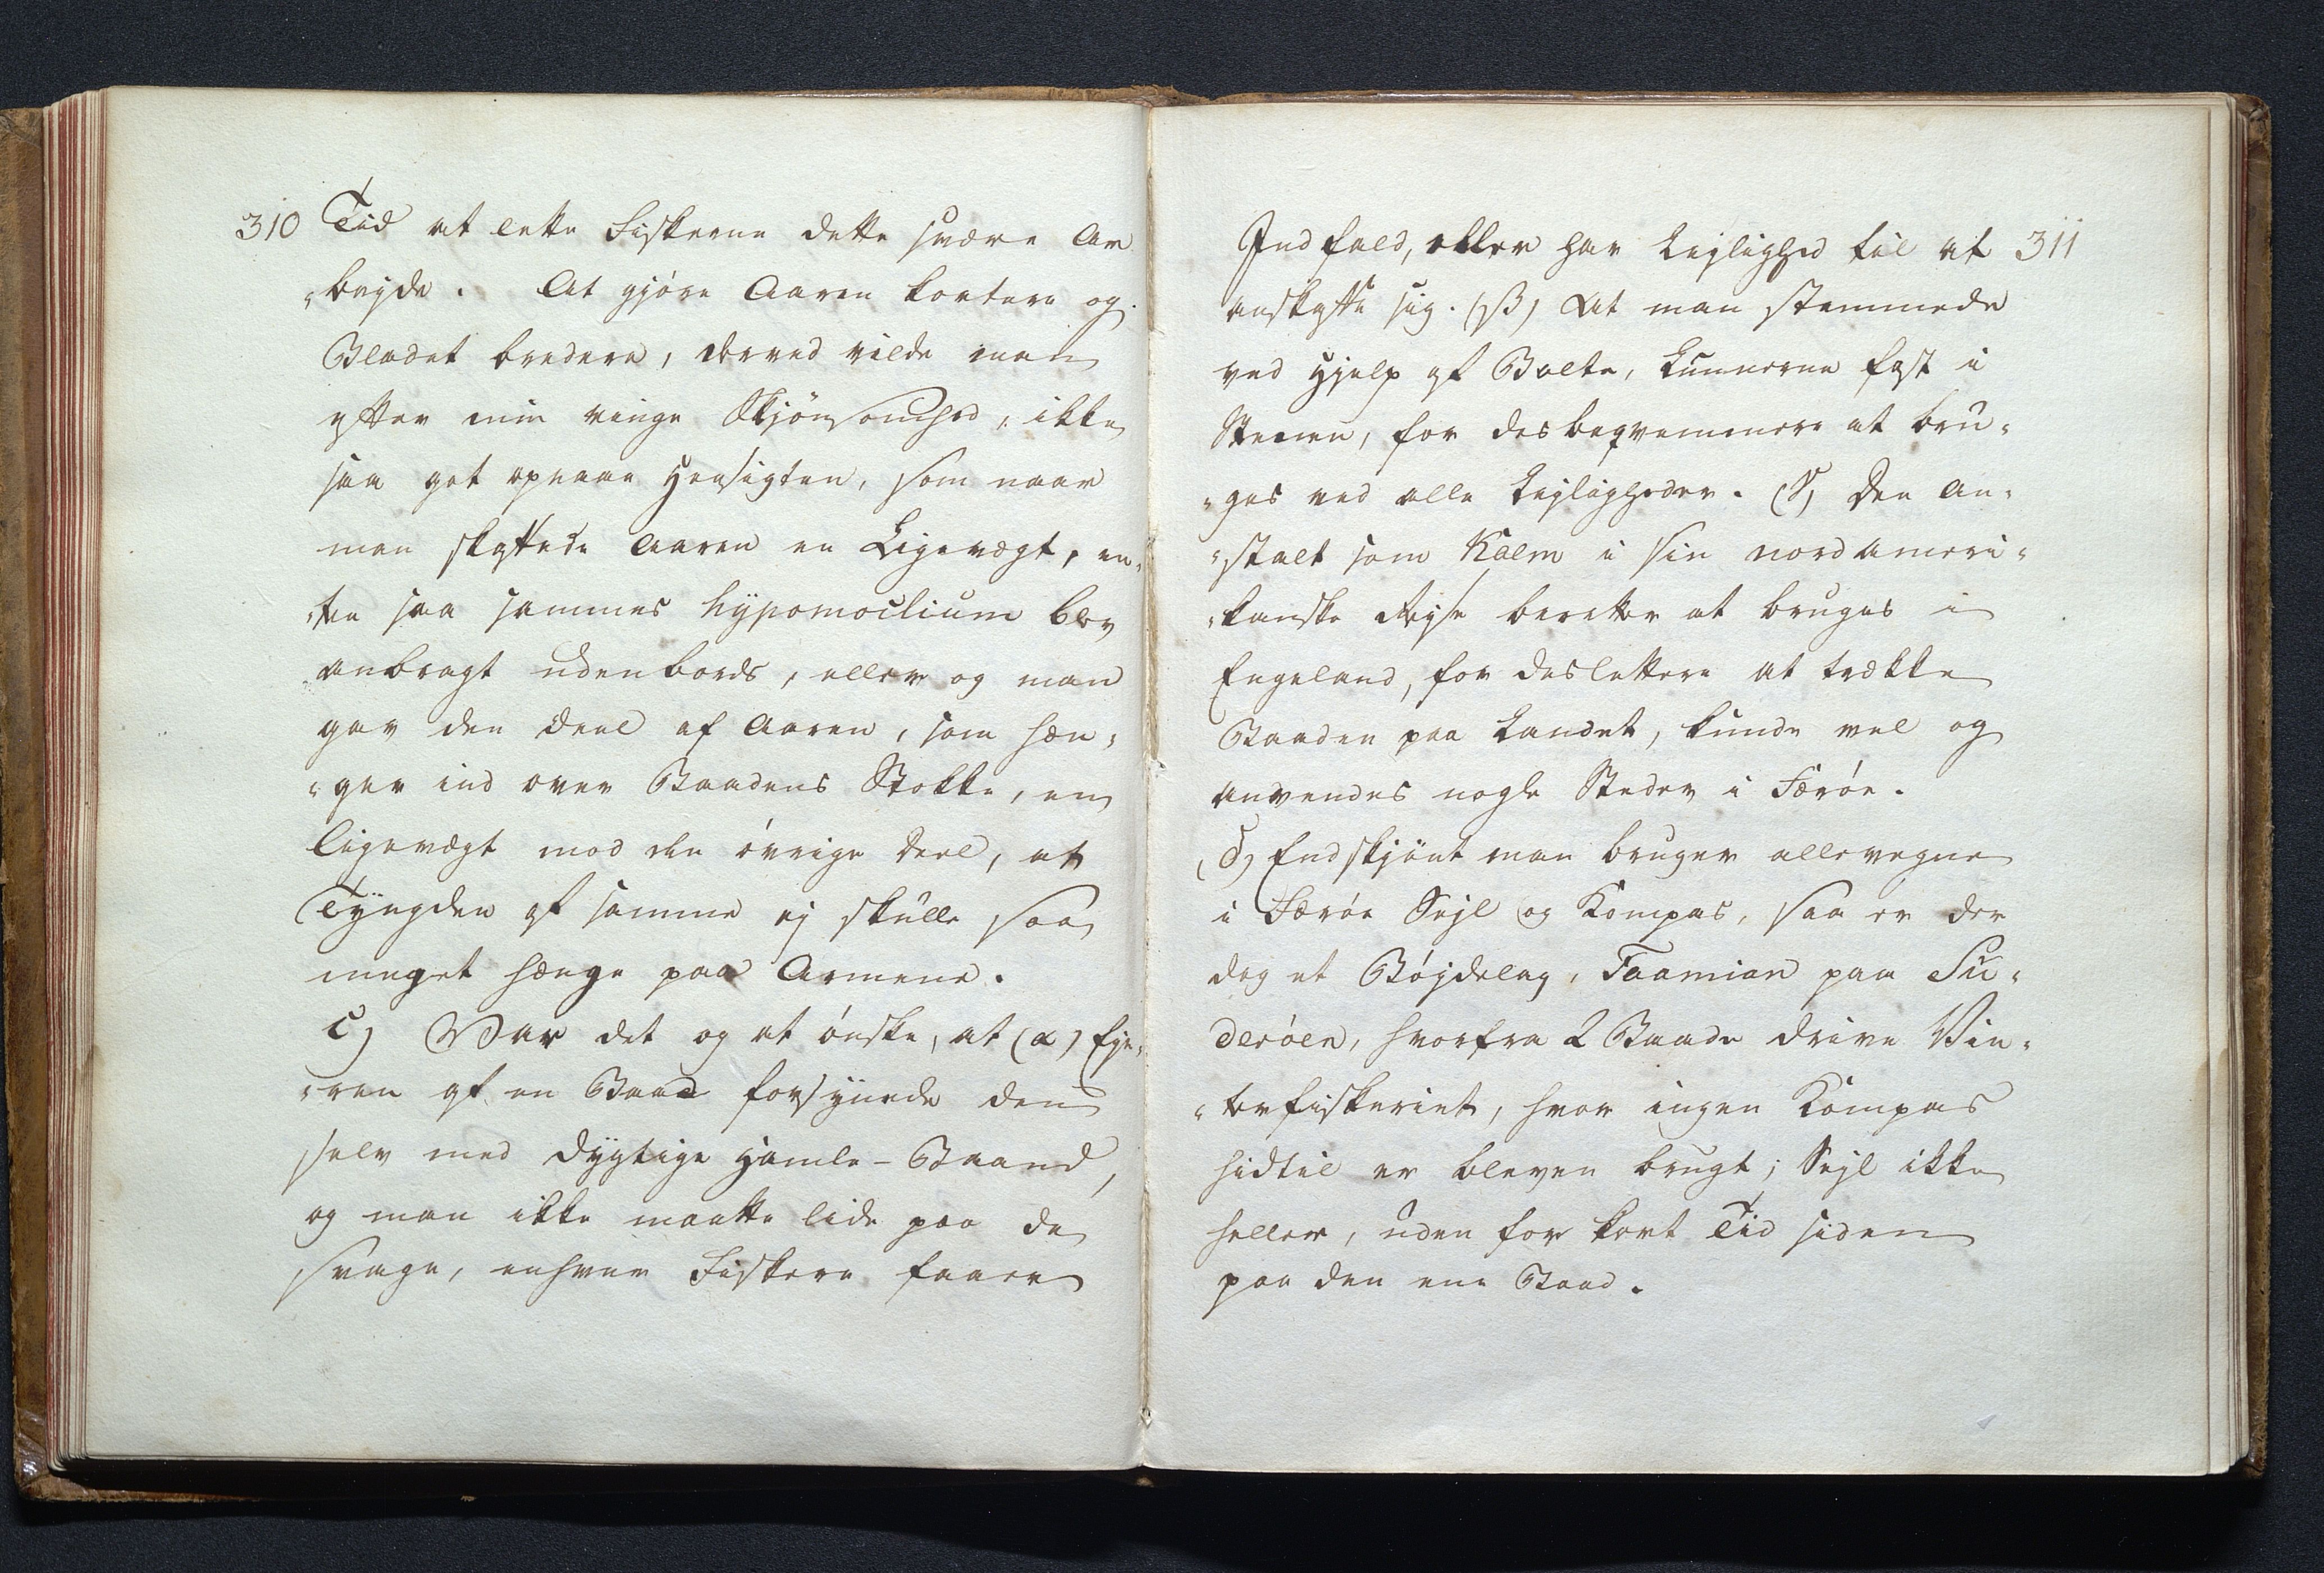 310 Tid at lette Fiskerne dette svære Ar
„bejde. At gjöre Aaren kortere og
Bladet bredere, derved vilde man
efter min ringe Skjönsomhed, ikke
saa got opnaae Hensigten, som naar
man skaffede Aaren en Ligevægt, en„
„ten saa sammes hypomoclium blev
anbragt udenbords, eller og man
gav den Deel af Aaren, som hæn„
„ger ind over Baadens Stokke, en
ligevægt mod den övrige Deel, at
Tyngden af samme ej skulle saa
meget hænge paa Armene.
c) Var det og at önske, at (α) Eje„
„ren af en Baad forsynede den
selv med dygtige Hamle-Baand,
og man ikke maatte lide paa de
svage, enhver Fiskere faaer
Indfald, eller har Lejlighed til at 311
anskaffe sig. (β) At man stemmede
ved Hjelp af Bolte, Lunnerne fast i
Stenen, for desbeqvemmere at bru„
„ges ved alle Lejligheder. (γ) Den An„
„stalt som Kalm i sin nordameri„
„kanske Rejse beretter at bruges i
Engeland, for deslettere at trække
Baaden paa Landet, kunde vel og
anvendes nogle Steder i Færöe.
(δ) Endskjönt man bruger allevegne
i Færöe Sejl og Kompas, saa er der
dog et Böjdelag, Faamian paa Su„
deröen, hvorfra 2 Baade drive Vin„
„terfiskeriet, hvor ingen Kompas
hidtil er bleven brugt; Sejl ikke
heller, uden for kort Tid siden
paa den ene Baad.